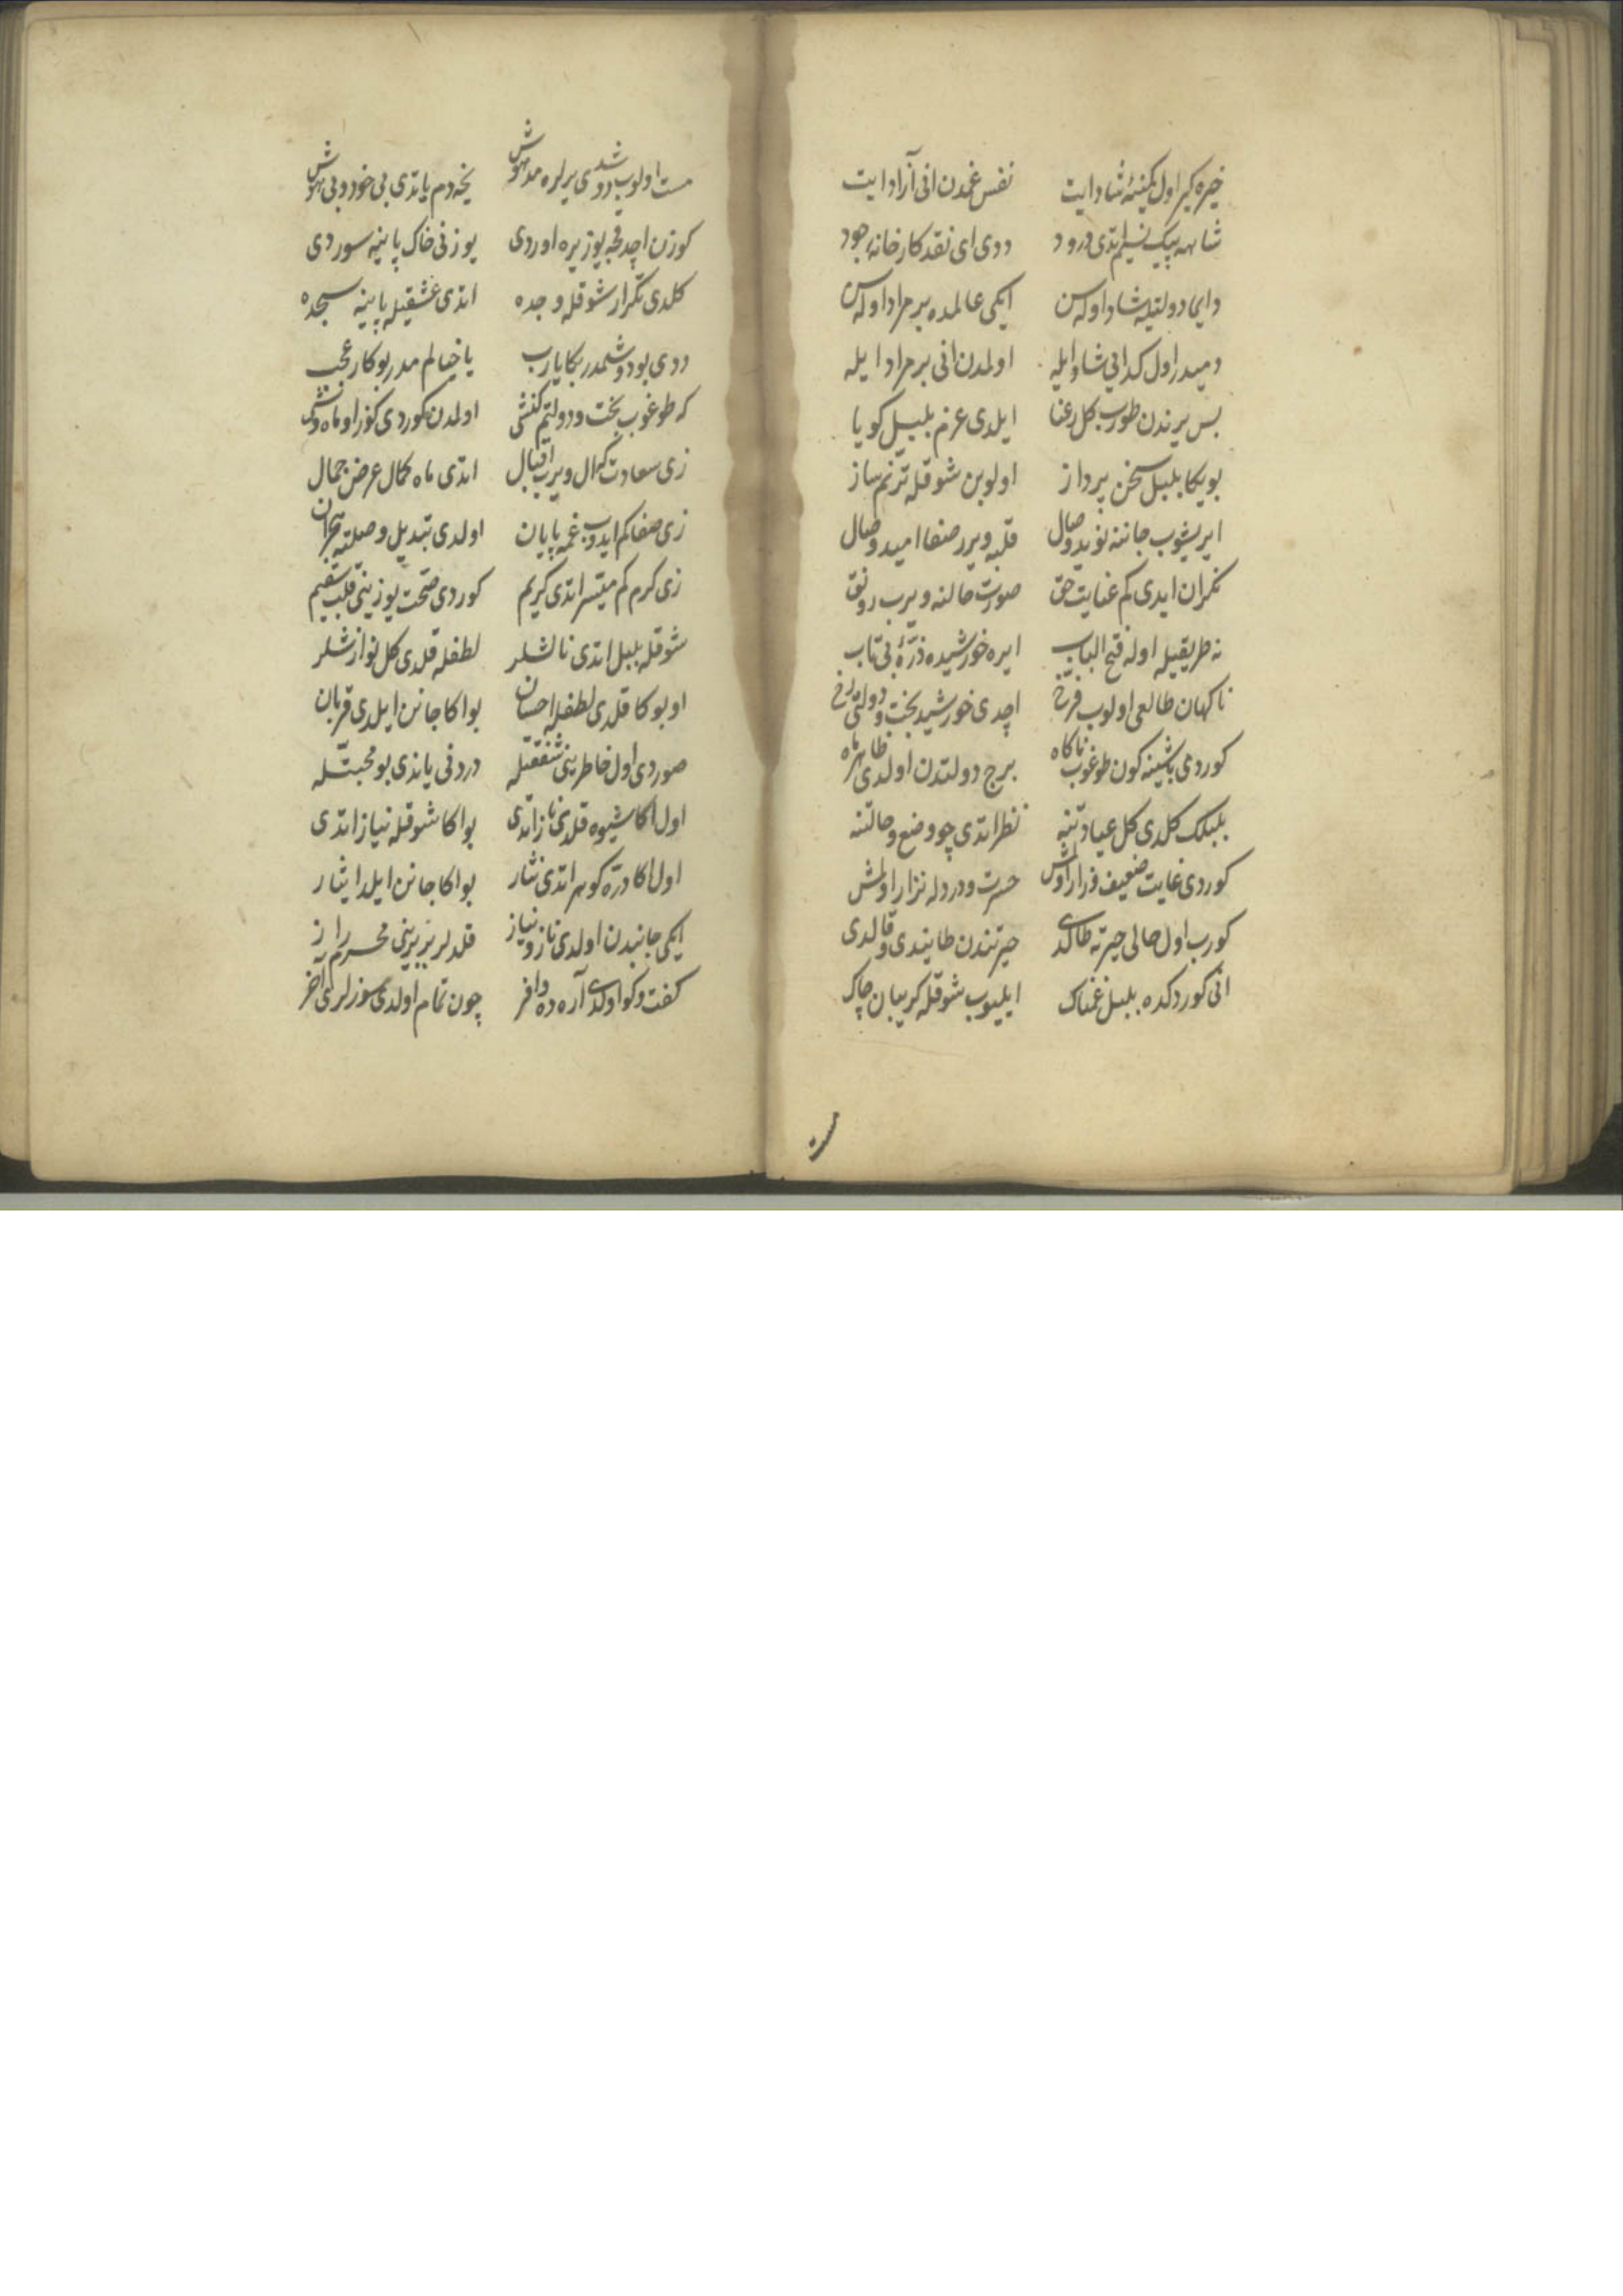 خیره کیر اول کمینه‌ٔ شاد ایت نفس غمدن انی آزاد ایت
شاهه پیک نسیم ایتدی درود ددی ای نقد کارخانهٔ جود
دایما دولتیله شاد اوله‌سن ایکی عالمده بر مراد اوله‌سن
دمیدر اول کدایی شاد ایله اولمدن انی بر مراد ایله
بس یرندن طورب کل رعنا ایلدی عزم بلبل کویا
بویکا بلبل سخن پرداز اولوبن شوقله ترنم ساز
ایریشوب جاننه نوید وصال قلبه ویرر صفا امید وصال
نکران ایدی کم عنایت حق صورت حالنه ویرب رونق
نه طریقیله اوله فتح الباب ایره خورشیده ذرّهٔ بی تاب
ناکهان طالعی اولوب فرّخ اچدی خورشید بخت و دولتی رخ
کوردی باشینه کون طوغوب ناکاه برج دولتدن اولدی ظاهر ماه
بلبلک کلدی کل عیادتنه نظر ایتدی چو وضع و حالتنه
کوردی غایت ضعیف و زار اولمش حسرت و دردله نزار اولمش
کورب اول حالی حیرته طالدی حیرتندن طایندی و قالدی
انی کوردکده بلبل غمناک ایلیوب شوقله کریبان چاک
مست
مست اولوب دوشدی یرلره مدهوش نیجه دم یاتدی بی خود و بی هوش
کوزن اچدقجه یوز یره اوردی یوزنی خاک پاینه سوردی
کلدی تکرار شوقله وجده اتدی عشقیله پاینه سجده
ددی بو دوشمدر بکا یا رب یا خیالم مدر بو کار عجب
که طوغوب بخت و دولتم کنشی اولمدن کوردی کوز او ماه وشی
زی سعادت که ال ویرب اقبال اتدی ماه کمال عرض جمال
زی صفا کم ایدوب غمه پایان اولدی تبدیل وصلته هجران
زی کرم کم میسر اتدی کریم کوردی صحت یوزینی قلب سقیم
شوقله بلبل اتدی نالشلر لطفله قلدی کل نوازشلر
او بوکا قلدی لطفله احسان بو اکا جانن ایلدی قربان
صوردی اول خاطرینی شفقتله دردنی یاندی بو محبتله
اول اکا شیوه قلدی ناز اتدی بو اکا شوقله نیاز اتدی
اول اکا درّ و کوهر اتدی نثار بو اکا جانن ایلدی ایثار
ایکی جانبدن اولدی ناز و نیاز قلدلر بربرینی محرم راز
کفت و کو اولدی آره‌ده وافر چون تمام اولدی سوزلری آخر